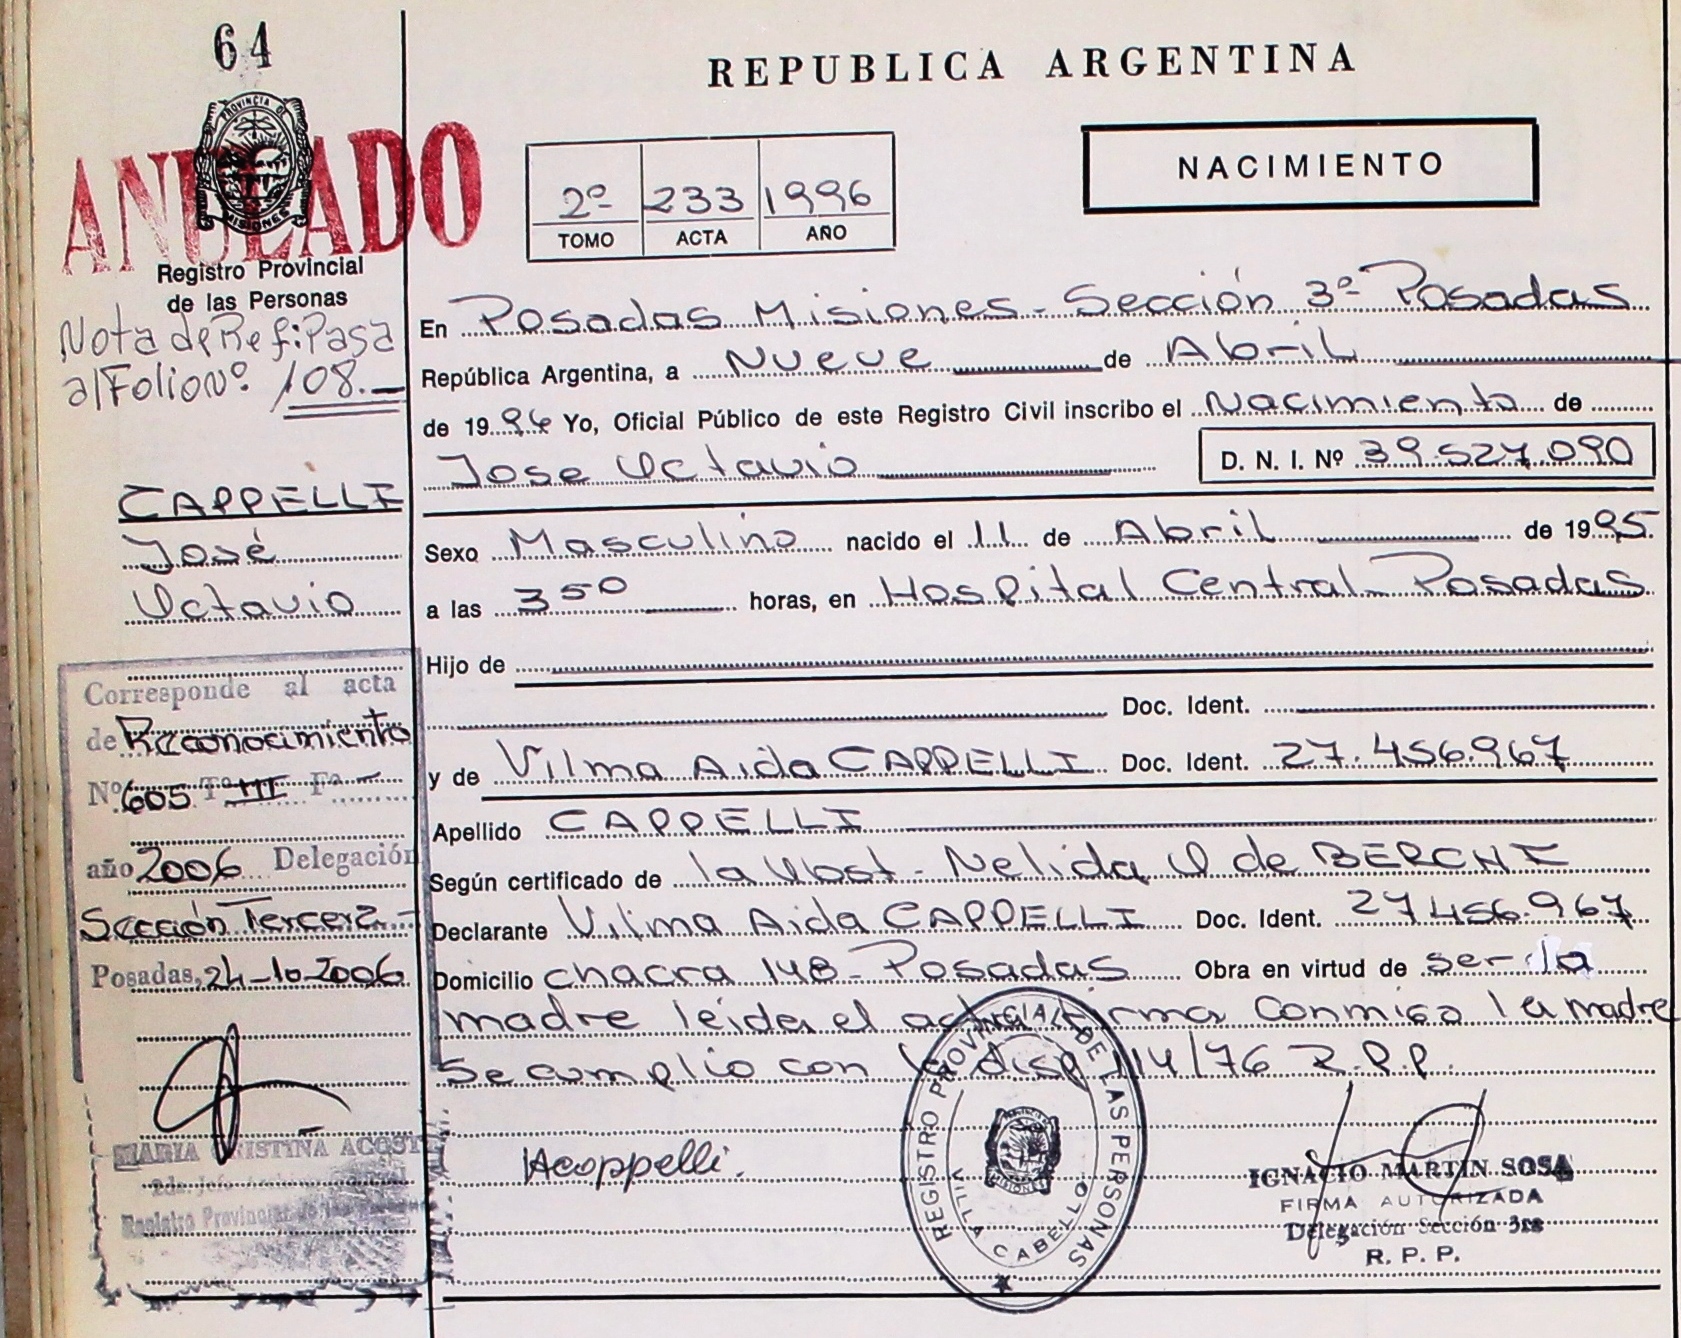 64
REPUBLICA ARGENTINA
PROVINCIA DE
MISIONES
ANULADO
NACIMIENTO
2º 233 1996
TOMO ACTA AÑO
Registro Provincial
de las Personas
Nota de Ref: Pasa
al Folio Nº. 108.-
En Posadas Misiones - Sección 3º Posadas
República Argentina, a Nueve de Abril
de 1996 Yo, Oficial Público de este Registro Civil inscribo el Nacimiento de
Jose Octavio D. N. I. Nº 39.527.090
CAPPELLI
José
Octavio
Sexo Masculino nacido el 11 de Abril de 1995.
a las 3 50 horas, en Hospital Central - Posadas
Hijo de
Doc. Ident.
y de Vilma Aida CAPPELLI Doc. Ident. 27.456.967
Apellido CAPPELLI
Según certificado de la Obst - Nelida O de BERCHI
Declarante Vilma Aida CAPPELLI Doc. Ident. 27.456.967
Domicilio chacra 148 - Posadas Obra en virtud de ser la
madre leida el acta firma conmigo la madre
Se cumplio con la disp 114/76 R.P.P.
Corresponde al acta
de Reconocimiento
Nº 605 Tº III Fº -
año 2006 Delegación
Sección Tercera -
Posadas, 24-10-2006
MARIA CRISTINA ACOST
Registro Provincial de las
VAcappelli.
REGISTRO PROVINCIAL DE LAS PERSONAS
VILLA CABELLO
MISIONES
IGNACIO MARTIN SOSA
FIRMA AUTORIZADA
Delegación Sección 3ra
R. P. P.